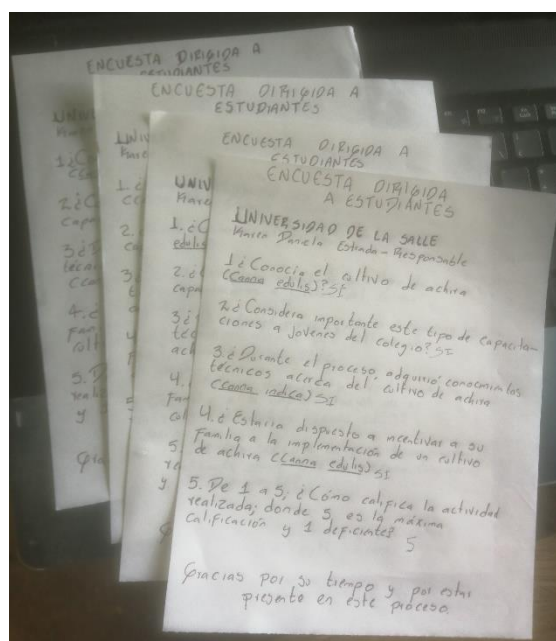 ENCUESTA DIRIGIDA A
ESTUDIANTES
ENCUESTA DIRIGIDA A
ESTUDIANTES
ENCUESTA DIRIGIDA A
ESTUDIANTES
ENCUESTA DIRIGIDA
A ESTUDIANTES
UNIVERSIDAD DE LA SALLE
Karen Daniela Estrada - Responsable
1 ¿Conocia el cultivo de achira
(Canna edulis)? SI
2 ¿Considera importante este tipo de capacita-
ciones a jovenes del colegio? SI
3. ¿Durante el proceso, adquirió conocimientos
técnicos acerca del cultivo de achira
(Canna indica) SI
4. ¿Estaria dispuesto a incentivar a su
familia a la implementación de un cultivo
de achira (Canna edulis) SI
5. De 1 a 5; ¿Cómo califica la actividad
realizada; donde 5 es la máxima
calificación y 1 deficiente?
5
Gracias por su tiempo y por estar
presente en este proceso.